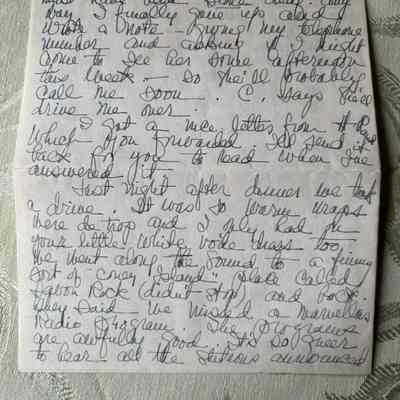 way I finally gave up and
wrote a note giving my telephone
number and asking if I might
come to see her some afternoon
this week. So she'll probably
call me soon. C. says she'll
drive me over.
I got a nice letter from
which you forwarded. I'll send it
back for you to read when I've
answered it.
Last night after dinner we took
a drive. It was so warm wraps
were de trop and I only had on
your little white voile
We went along the Sound to a funny
sort of "Coney Island" place called
Savin Rock (didn't stop) and back.
They said we missed a marvelous
radio program. The programs
are awfully good. It's so queer
to hear all the stations announced